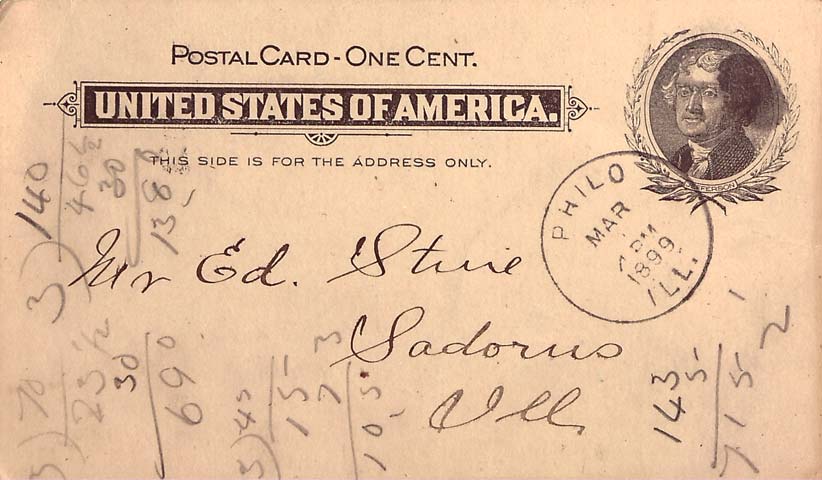 POSTAL CARD - ONE CENT.
UNITED STATES OF AMERICA.
THIS SIDE IS FOR THE ADDRESS ONLY.
JEFFERSON
PHILO
MAR
PM
1899
ILL.
Mr Ed. Stine
Sadorus
Ill.
3)140
46 1/2
30
138
3)70
23 1/2
30
690
3)45
15
7
105
143
5
715
2